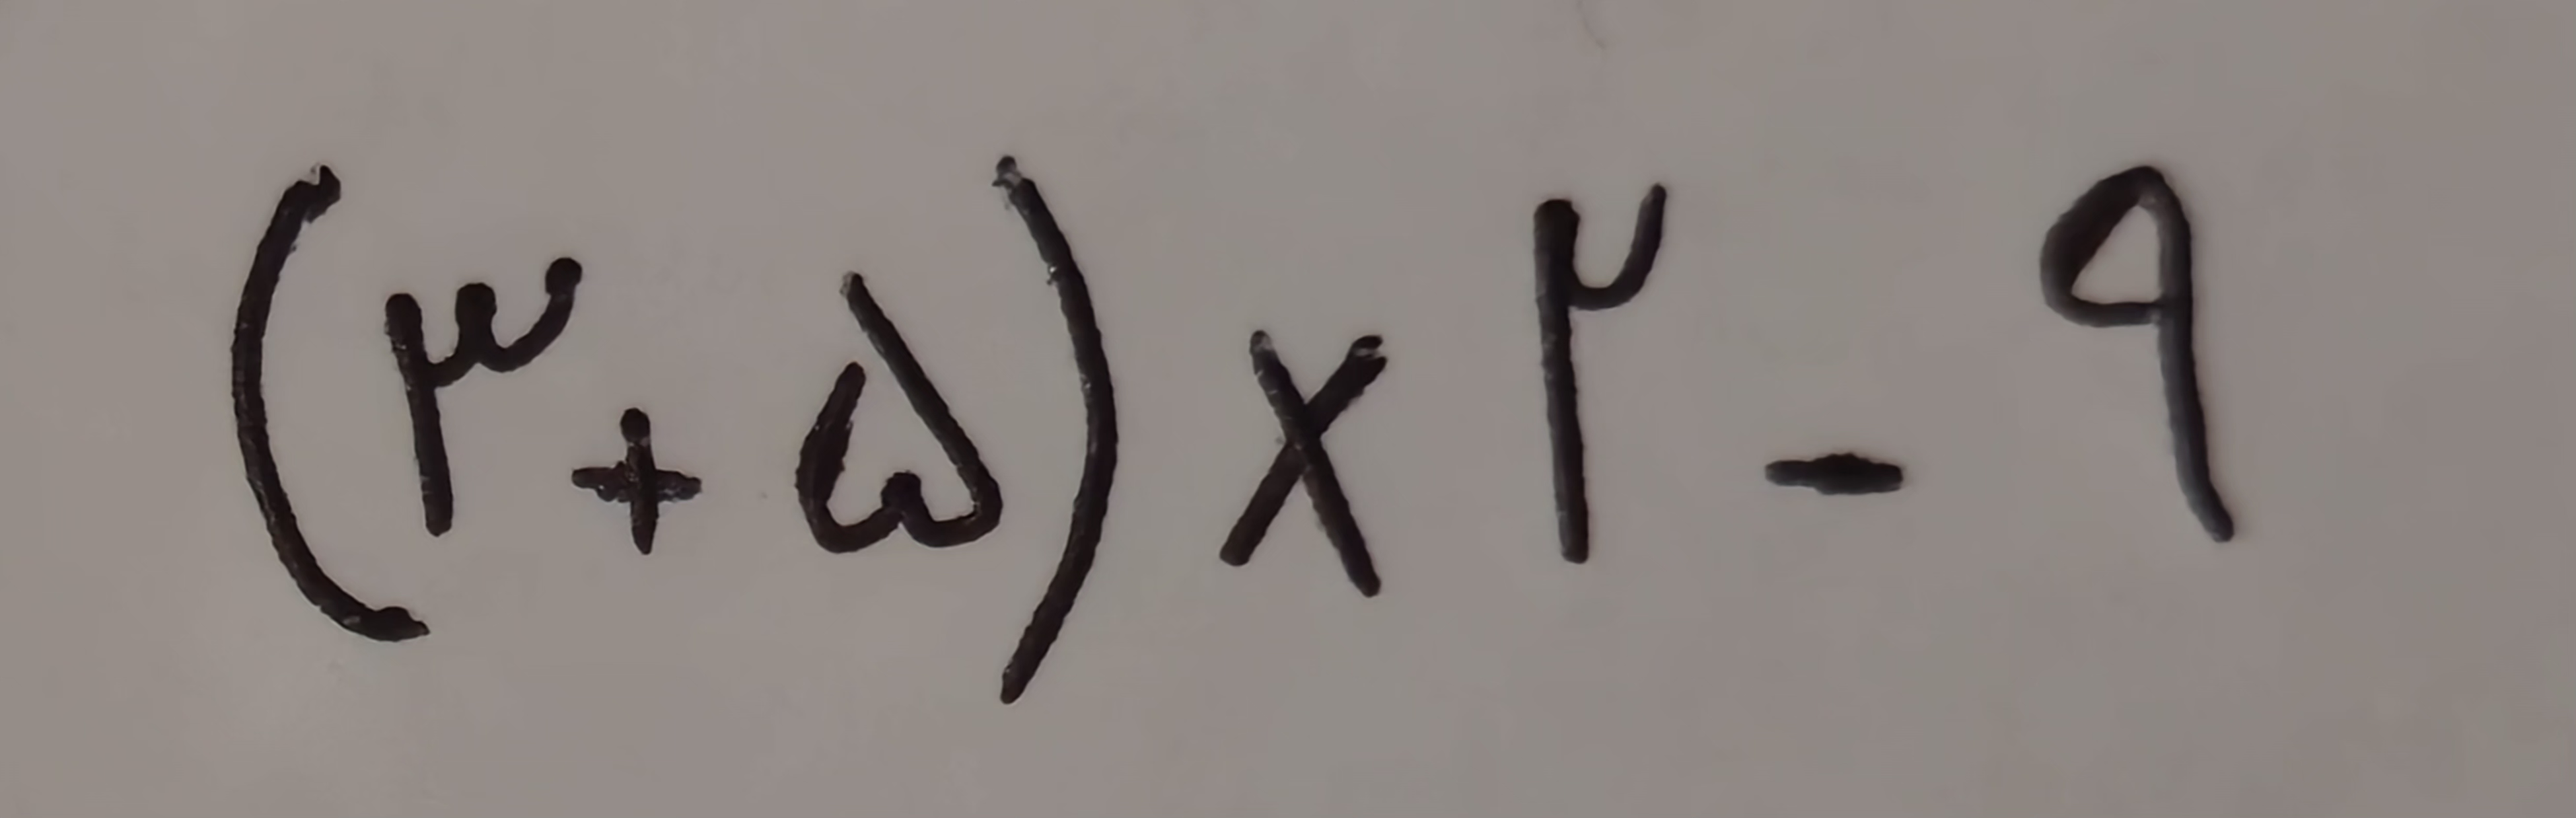 (۳+۵)×۲-۹